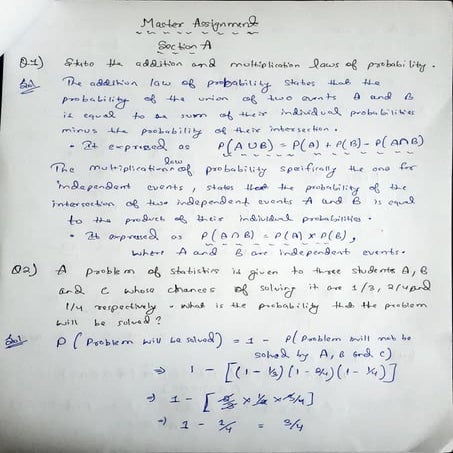 Master Assignment
Section A
Q.1) State the addition and multiplication laws of probability.
Sol The addition law of probability states that the
probability of the union of two events A and B
is equal to the sum of their individual probabilities
minus the probability of their intersection.
• It expressed as P(A∪B) = P(A) + P(B) - P(A∩B)
The multiplication law of probability specifically the one for
independent events, states that the probability of the
intersection of two independent events A and B is equal
to the product of their individual probabilities.
• It expressed as P(A∩B) = P(A) × P(B),
where A and B are independent events.
Q2) A problem of statistics is given to three students A, B
and C whose chances of solving it are 1/3, 2/4 and
1/4 respectively. What is the probability that the problem
will be solved?
Sol P (Problem will be solved) = 1 - P(Problem will not be
solved by A, B and C)
⇒ 1 - [(1 - 1/3) (1 - 2/4) (1 - 1/4)]
⇒ 1 - [2/3 × 1/2 × 3/4]
⇒ 1 - 1/4 = 3/4